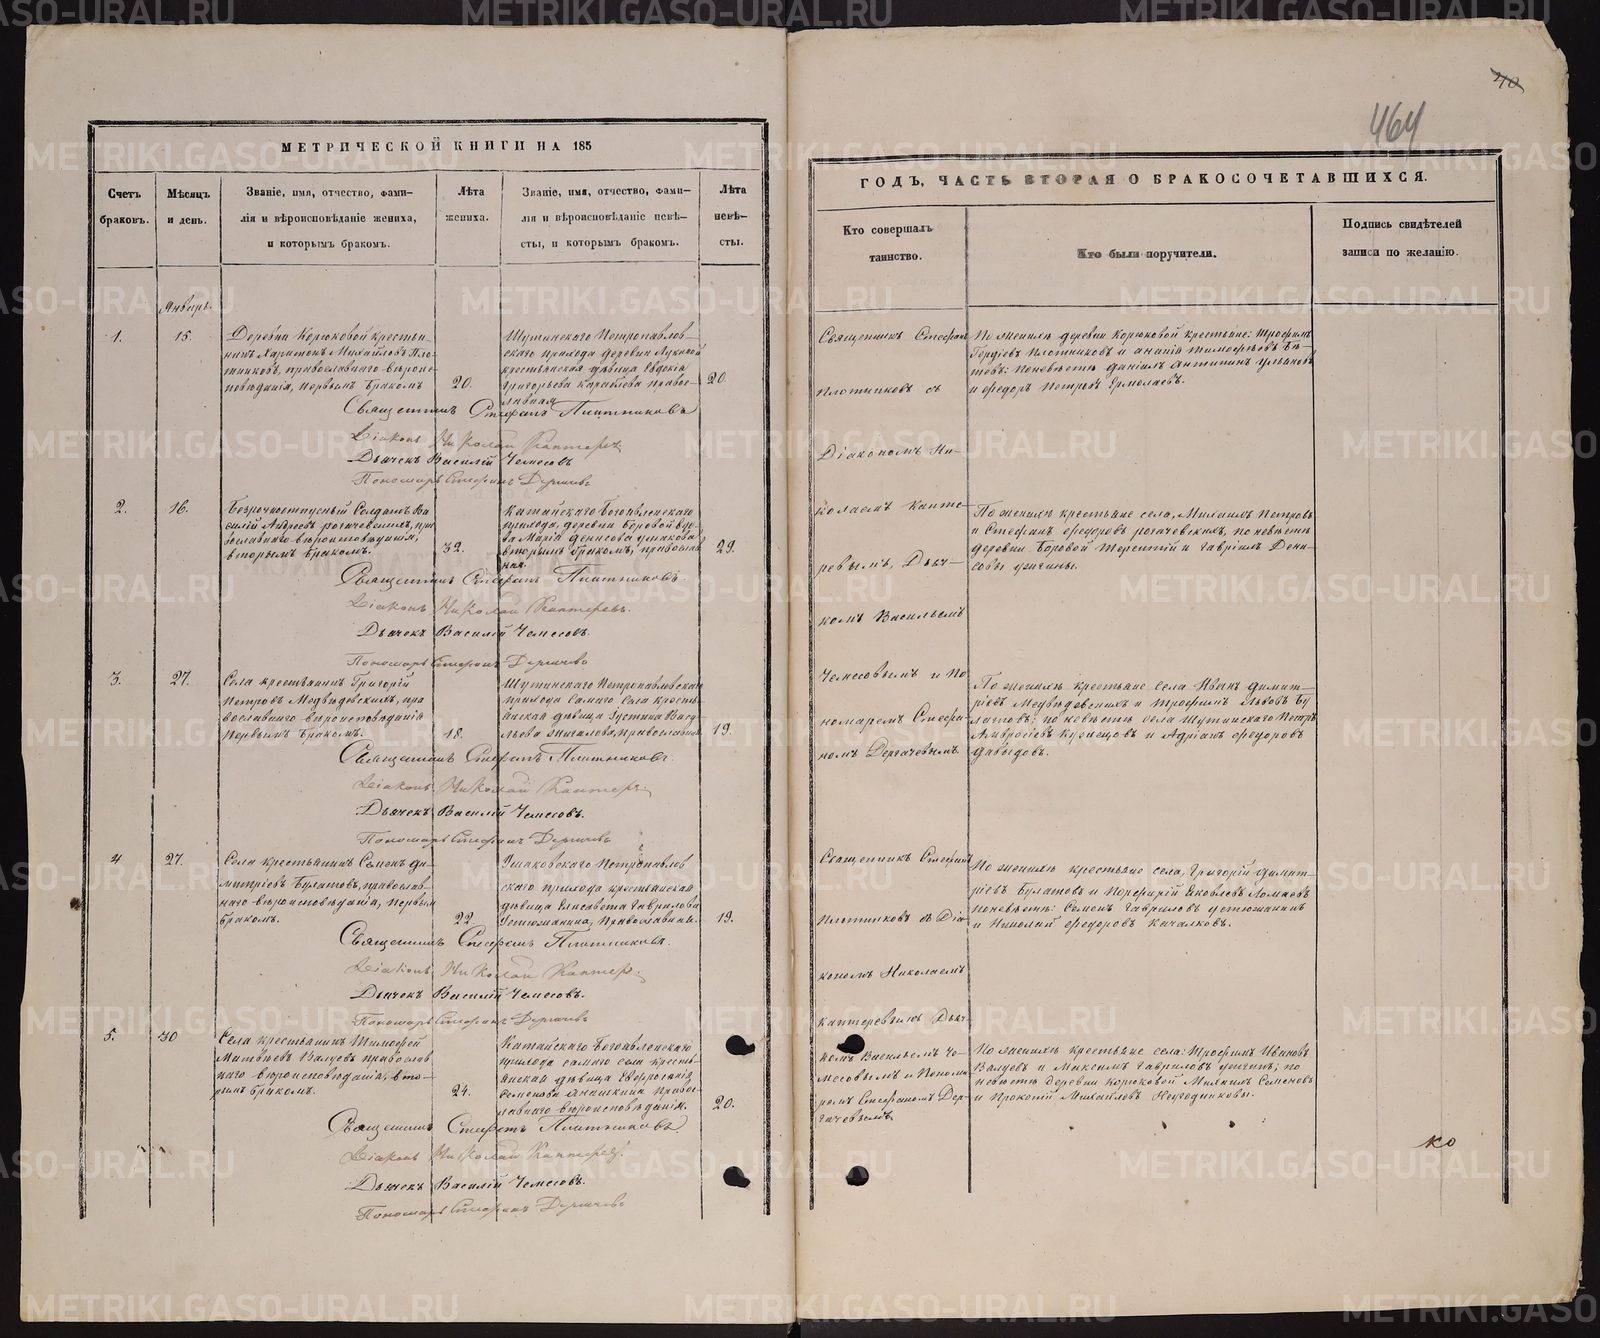 МЕТРИЧЕСКОЙ КНИГИ НА 185
Счетъ браковъ.
Мѣсяцъ и день.
Званіе, имя, отчество, фами-
лія и вѣроисповѣданіе жениха,
и которымъ бракомъ.
Лѣта жениха.
Званіе, имя, отчество, фами-
лія и вѣроисповѣданіе невѣ-
сты, и которымъ бракомъ.
Лѣта невѣ-
сты.
Январь.
1.
15.
Деревни Корюковой крестья-
нинъ Харитонъ Михайловъ Пло-
тниковъ, православнаго вѣроис-
повѣданія, первымъ бракомъ
20.
Шутинскаго Петропавлов-
скаго прихода деревни
крестьянская дѣвица Евдокія
Григорьева православная
20.
Священникъ Стефанъ Плотниковъ
Діаконъ Николай Каптеревъ
Дьячекъ Василій Чемесовъ
Пономарь Стефанъ Дергачевъ
2.
16.
Безсрочноотпускный Солдатъ Ва-
силій рогачевскихъ, пра-
вославнаго вѣроисповѣданія,
вторымъ бракомъ.
32.
Катайскаго Богоявленскаго
прихода, деревни Боровой вдо-
ва Марія Денисова
вторымъ бракомъ, православ-
ная
29.
Священникъ Стефанъ Плотниковъ.
Діаконъ Николай Каптеревъ.
Дьячекъ Василій Чемесовъ.
Пономарь Стефанъ Дергачевъ
3.
27.
Села крестьянинъ Григорій
Петровъ Медвѣдевскихъ, пра
вославнаго вѣроисповѣданія
первымъ бракомъ.
18.
Шутинскаго Петропавловскаго
прихода самаго села кресть-
янская дѣвица Устинья Васи-
льева православная
19.
Священникъ Стефанъ Плотниковъ.
Діаконъ Николай Каптеревъ
Дьячекъ Василій Чемесовъ.
Пономарь Стефанъ Дергачевъ
4
27.
Села крестьянинъ Семенъ Ди-
митріевъ Булатовъ, православ-
наго вѣроисповѣданія, первымъ
бракомъ.
22.
Ушаковскаго Петропавлов
скаго прихода крестьянская
дѣвица Елисавета Гаврилова
Устюжанина, Православныя.
19.
Священникъ Стефанъ Плотниковъ.
Діаконъ Николай Каптеревъ
Дьячекъ Василій Чемесовъ.
Пономарь Стефанъ Дергачевъ
5.
30
Села крестьянинъ Тимофей
Матвѣевъ Валуевъ православ
наго вѣроисповѣданія, вто-
рымъ бракомъ.
24.
Катайскаго Богоявленскаго
прихода самаго села кресть-
янская дѣвица Евфросинія
Семенова Правос-
лавнаго вѣроисповѣданія.
20.
Священникъ Стефанъ Плотниковъ
Діаконъ Николай Каптеревъ
Дьячекъ Василій Чемесовъ.
Пономарь Стефанъ Дергачевъ
40
464
ГОДЪ, ЧАСТЬ ВТОРАЯ О БРАКОСОЧЕТАВШИХСЯ.
Кто совершалъ таинство.
Кто были поручители.
Подпись свидѣтелей
записи по желанію.
Священникъ Стефанъ
Плотниковъ съ
Діакономъ Ни-
колаемъ Капте-
ревымъ, Дьяч-
комъ Васильемъ
Чемесовымъ и По
номаремъ Стефа-
номъ Дергачевымъ.
Священникъ Стефанъ
Плотниковъ съ Діа-
кономъ Николаемъ
Каптеревымъ Дьяч-
комъ Васильемъ Че-
месовымъ и Понома
ремъ Стефаномъ Дер-
гачевымъ
По женихѣ деревни Корюковой крестьяне: Трофимъ
Плотниковъ и Ананій Тимофѣевъ
По невѣстѣ Даніилъ Антипинъ Ульяновъ
и Федоръ Петровъ Ермолаевъ.
По женихѣ крестьяне села, Михаилъ Петровъ
и Стефанъ Федоровъ рогачевскихъ, по невѣстѣ
деревни Боровой Терентій и Гавріилъ Дени-
совы
По женихѣ крестьяне села Иванъ Димит-
ріевъ Медвѣдевскихъ и Трофимъ Львовъ Бу
латовъ; по невѣстѣ села Шутинскаго Петръ
Амвросіевъ Кузнецовъ и Адріанъ Федоровъ
Давыдовъ.
По женихѣ крестьяне села, Григорій Димит-
ріевъ Булатовъ и Порфирій Яковлевъ Ломаевъ
По невѣстѣ: Семенъ Гавриловъ Устюжанинъ
и Николай Федоровъ Качалковъ.
По женихѣ крестьяне села: Трофимъ Ивановъ
Валуевъ и Максимъ Гавриловъ по
невѣстѣ Деревни Корюковой Михаилъ Семеновъ
и Прокопій Михайловъ Неугодниковы.
ко
METRIKI.GASO-URAL.RU